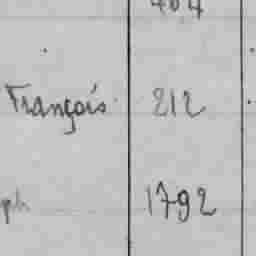 404
François 212
ph 1792